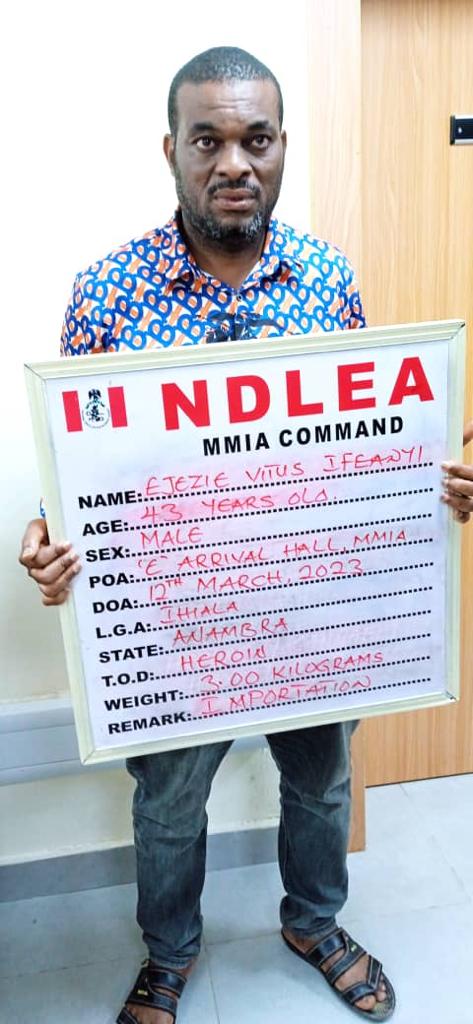 NDLEA
MMIA COMMAND
NAME: EJEZIE VITUS IFEANYI
AGE: 43 YEARS OLD.
SEX: MALE
POA: 'E' ARRIVAL HALL, MMIA
DOA: 12TH MARCH, 2023
L.G.A: IHIALA
STATE: ANAMBRA
T.O.D: HEROIN
WEIGHT: 3.00 KILOGRAMS
REMARK: IMPORTATION